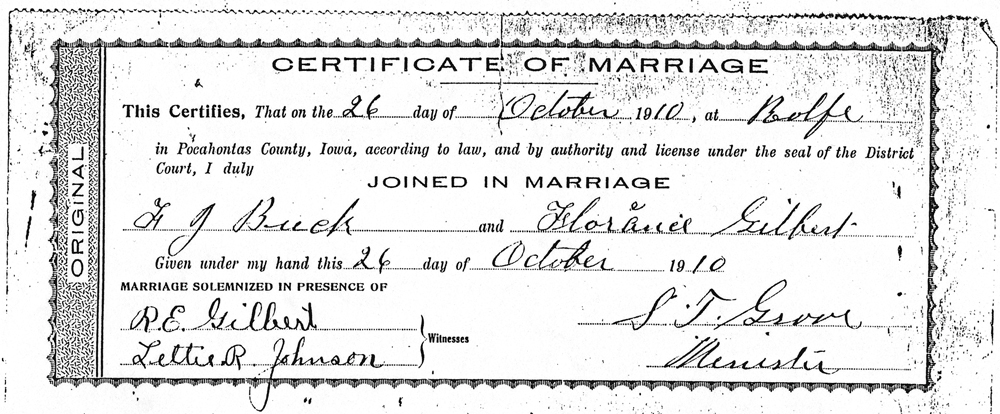 CERTIFICATE OF MARRIAGE
This Certifies, That on the 26 day of October 1910, at Rolfe
in Pocahontas County, Iowa, according to law, and by authority and license under the seal of the District
Court, I duly
JOINED IN MARRIAGE
F J Buck and Florance Gilbert
Given under my hand this 26 day of October 1910
MARRIAGE SOLEMNIZED IN PRESENCE OF
R.E. Gilbert
Lettie R Johnson
Witnesses
S. T. Grove
Minister
ORIGINAL